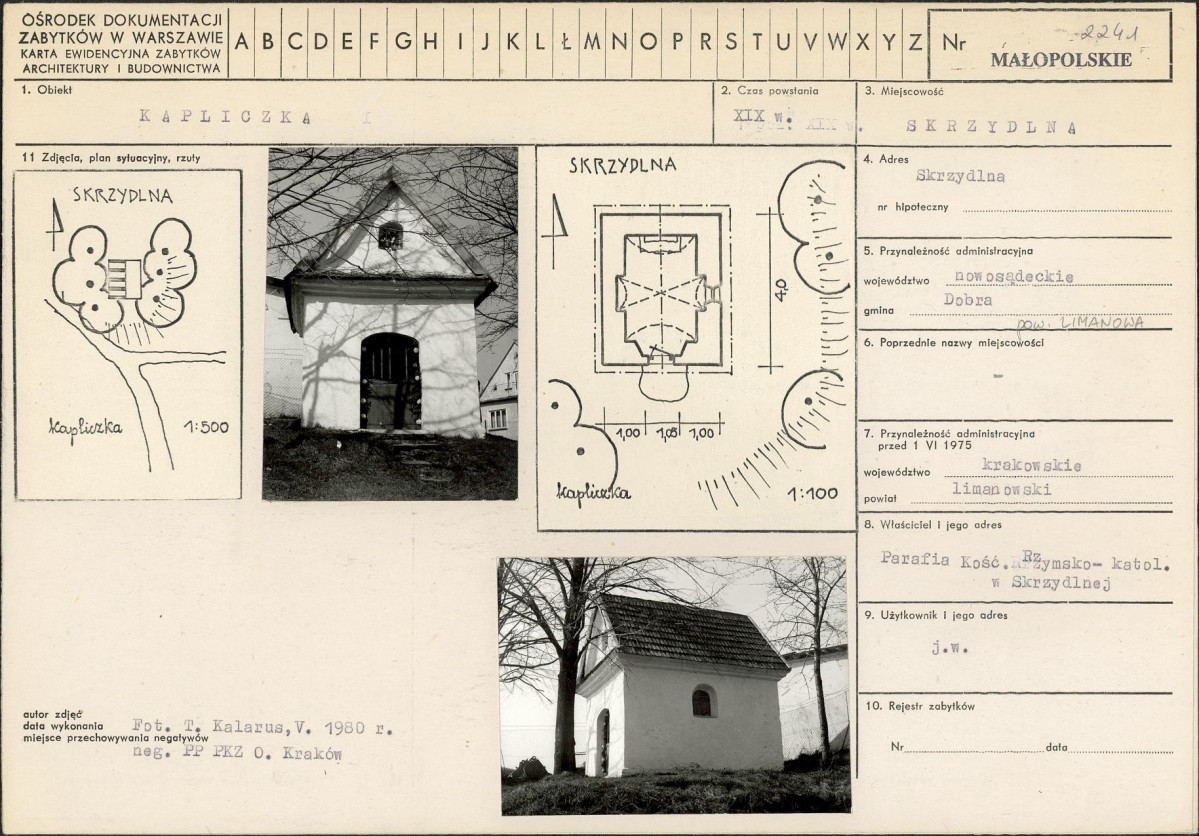 OŚRODEK DOKUMENTACJI
ZABYTKÓW W WARSZAWIE
KARTA EWIDENCYJNA ZABYTKÓW
ARCHITEKTURY I BUDOWNICTWA
A B C D E F G H I J K L Ł M N O P R S T U V W X Y Z
Nr 2241
MAŁOPOLSKIE
1. Obiekt
KAPLICZKA I
2. Czas powstania
XIX w.
3. Miejscowość
SKRZYDLNA
11 Zdjęcia, plan sytuacyjny, rzuty
SKRZYDLNA
kapliczka 1:500
SKRZYDLNA
4,0
1,00 1,05 1,00
kapliczka 1:100
4. Adres
Skrzydlna
nr hipoteczny
5. Przynależność administracyjna
województwo nowosądeckie
gmina Dobra
pow. LIMANOWA
6. Poprzednie nazwy miejscowości
-
7. Przynależność administracyjna
przed 1 VI 1975
województwo krakowskie
powiat limanowski
8. Właściciel i jego adres
Parafia Kość. Rzymsko- katol.
w Skrzydlnej
9. Użytkownik i jego adres
j.w.
10. Rejestr zabytków
Nr data
autor zdjęć
data wykonania
miejsce przechowywania negatywów
Fot. T. Kalarus, V. 1980 r.
neg. PP PKZ O. Kraków